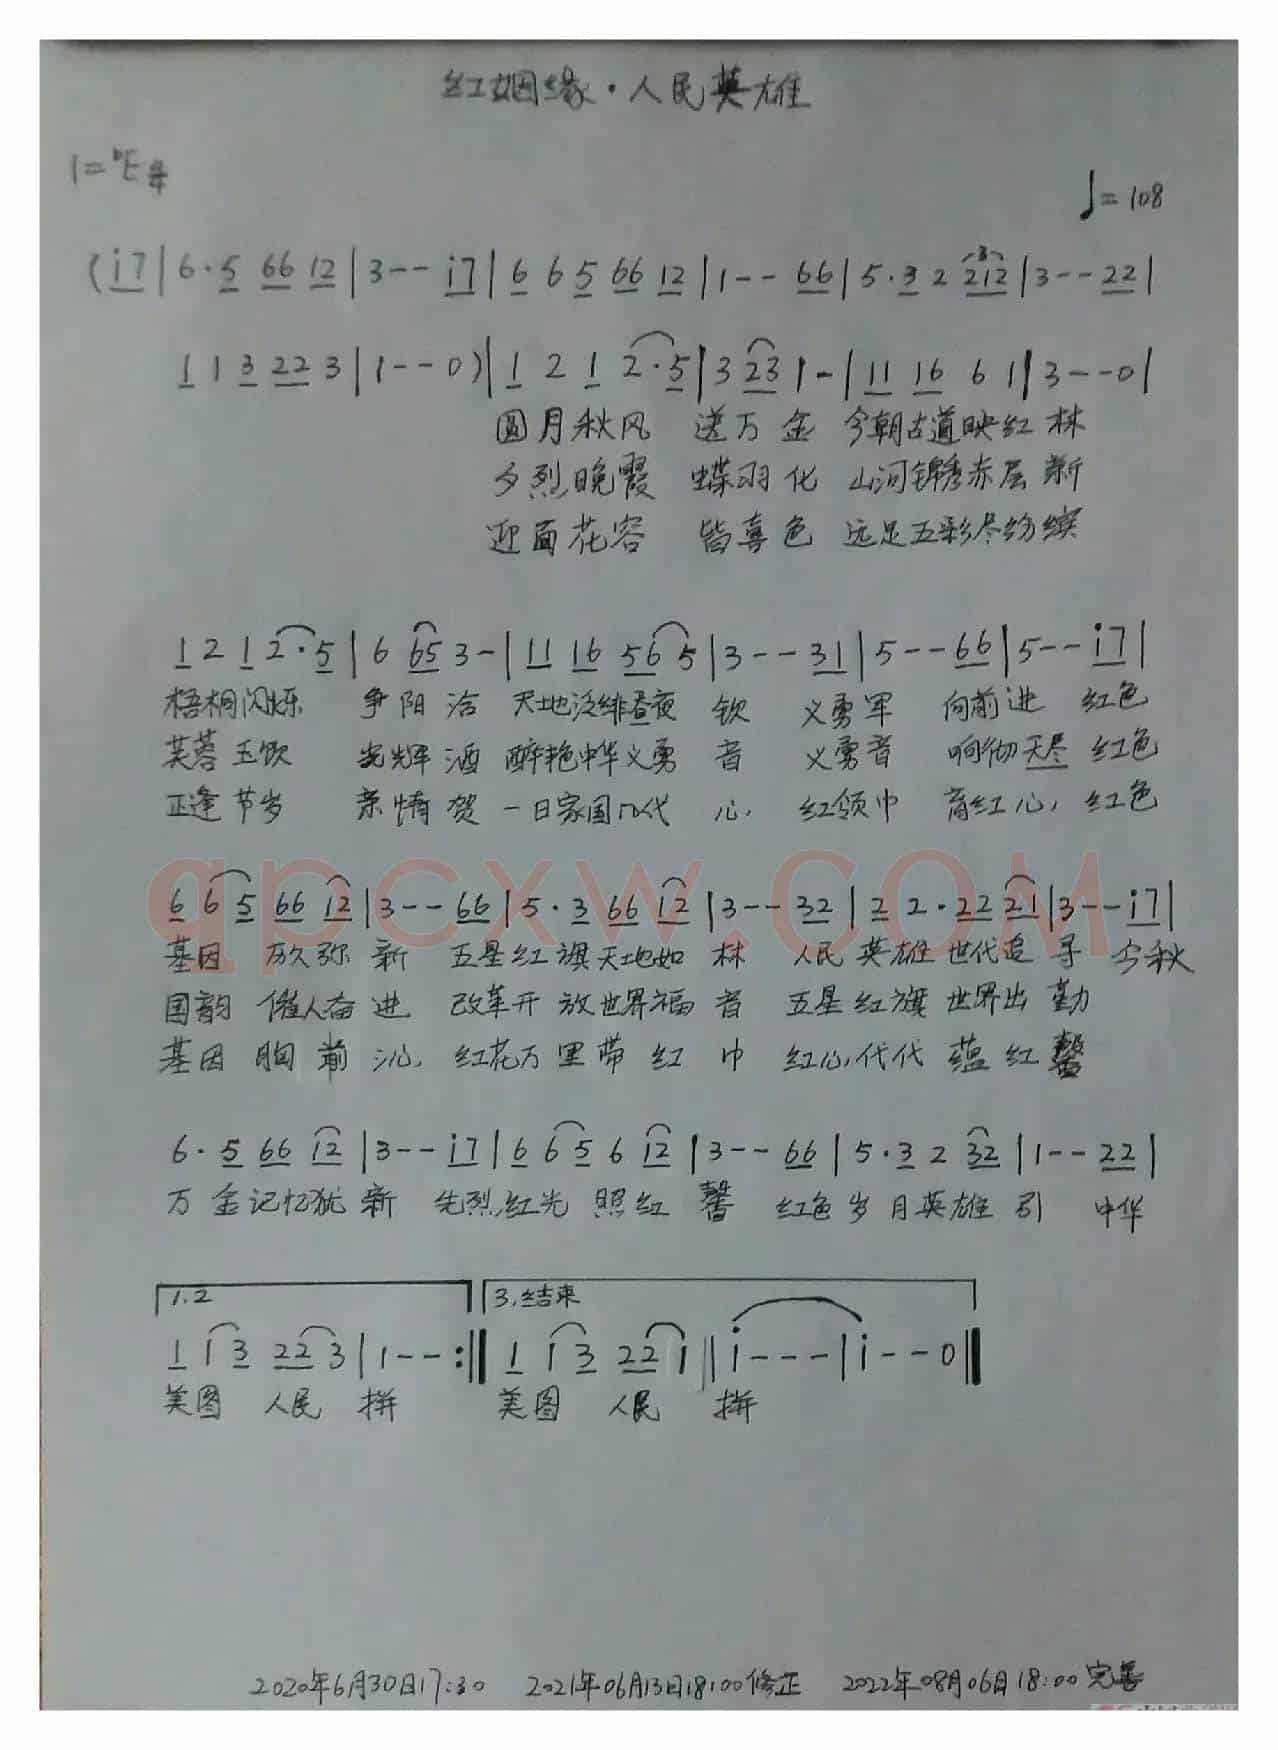 红姻缘·人民英雄
1=♭E 4/4
♩=108
(i7|6·5 66 12|3-- i7|6 6 5 66 12|1-- 66|5·3 2 212|3-- 22|
1 1 3 22 3|1--0)|1 2 1 2·5|3 23 1-|11 16 6 1|3--0|
圆月秋风 送万金 今朝古道映红林
夕烈晚霞 蝶羽化 山河锦秀赤层新
迎面花容 皆喜色 远足五彩尽纷缤
1 2 1 2·5|6 65 3-|11 16 56 5|3-- 31|5-- 66|5-- i7|
梧桐闪烁 争阳洽 天地泛绯昼夜 钦 义勇军 向前进 红色
芙蓉玉饮 光辉酒 醉艳中华义勇 音 义勇音 响彻天尽 红色
正逢节岁 亲情贺 一日家国几代 心 红领巾 育红心, 红色
qpcxw.com
6 6 5 66 12|3-- 66|5·3 66 12|3-- 32|2 2·22 21|3-- i7|
基因 历久弥 新 五星红旗天地如 林 人民英雄世代追 寻 今秋
国韵 催人奋 进 改革开放世界福 音 五星红旗世界出 勤
基因 胸前 沁 红花万里带红 巾 红心代代蕴红 馨
6·5 66 12|3-- i7|6 6 5 6 12|3-- 66|5·3 2 32|1-- 22|
万金记忆犹 新 先烈红光照红 馨 红色岁月英雄 引 中华
1.2 3.结束
1 1 3 22 3|1--:‖ 1 1 3 22 1‖i---|i--0‖
美图 人民 拼 美图 人民 拼
2020年6月30日17:30 2021年06月13日18:00修正 2022年08月06日18:00完善